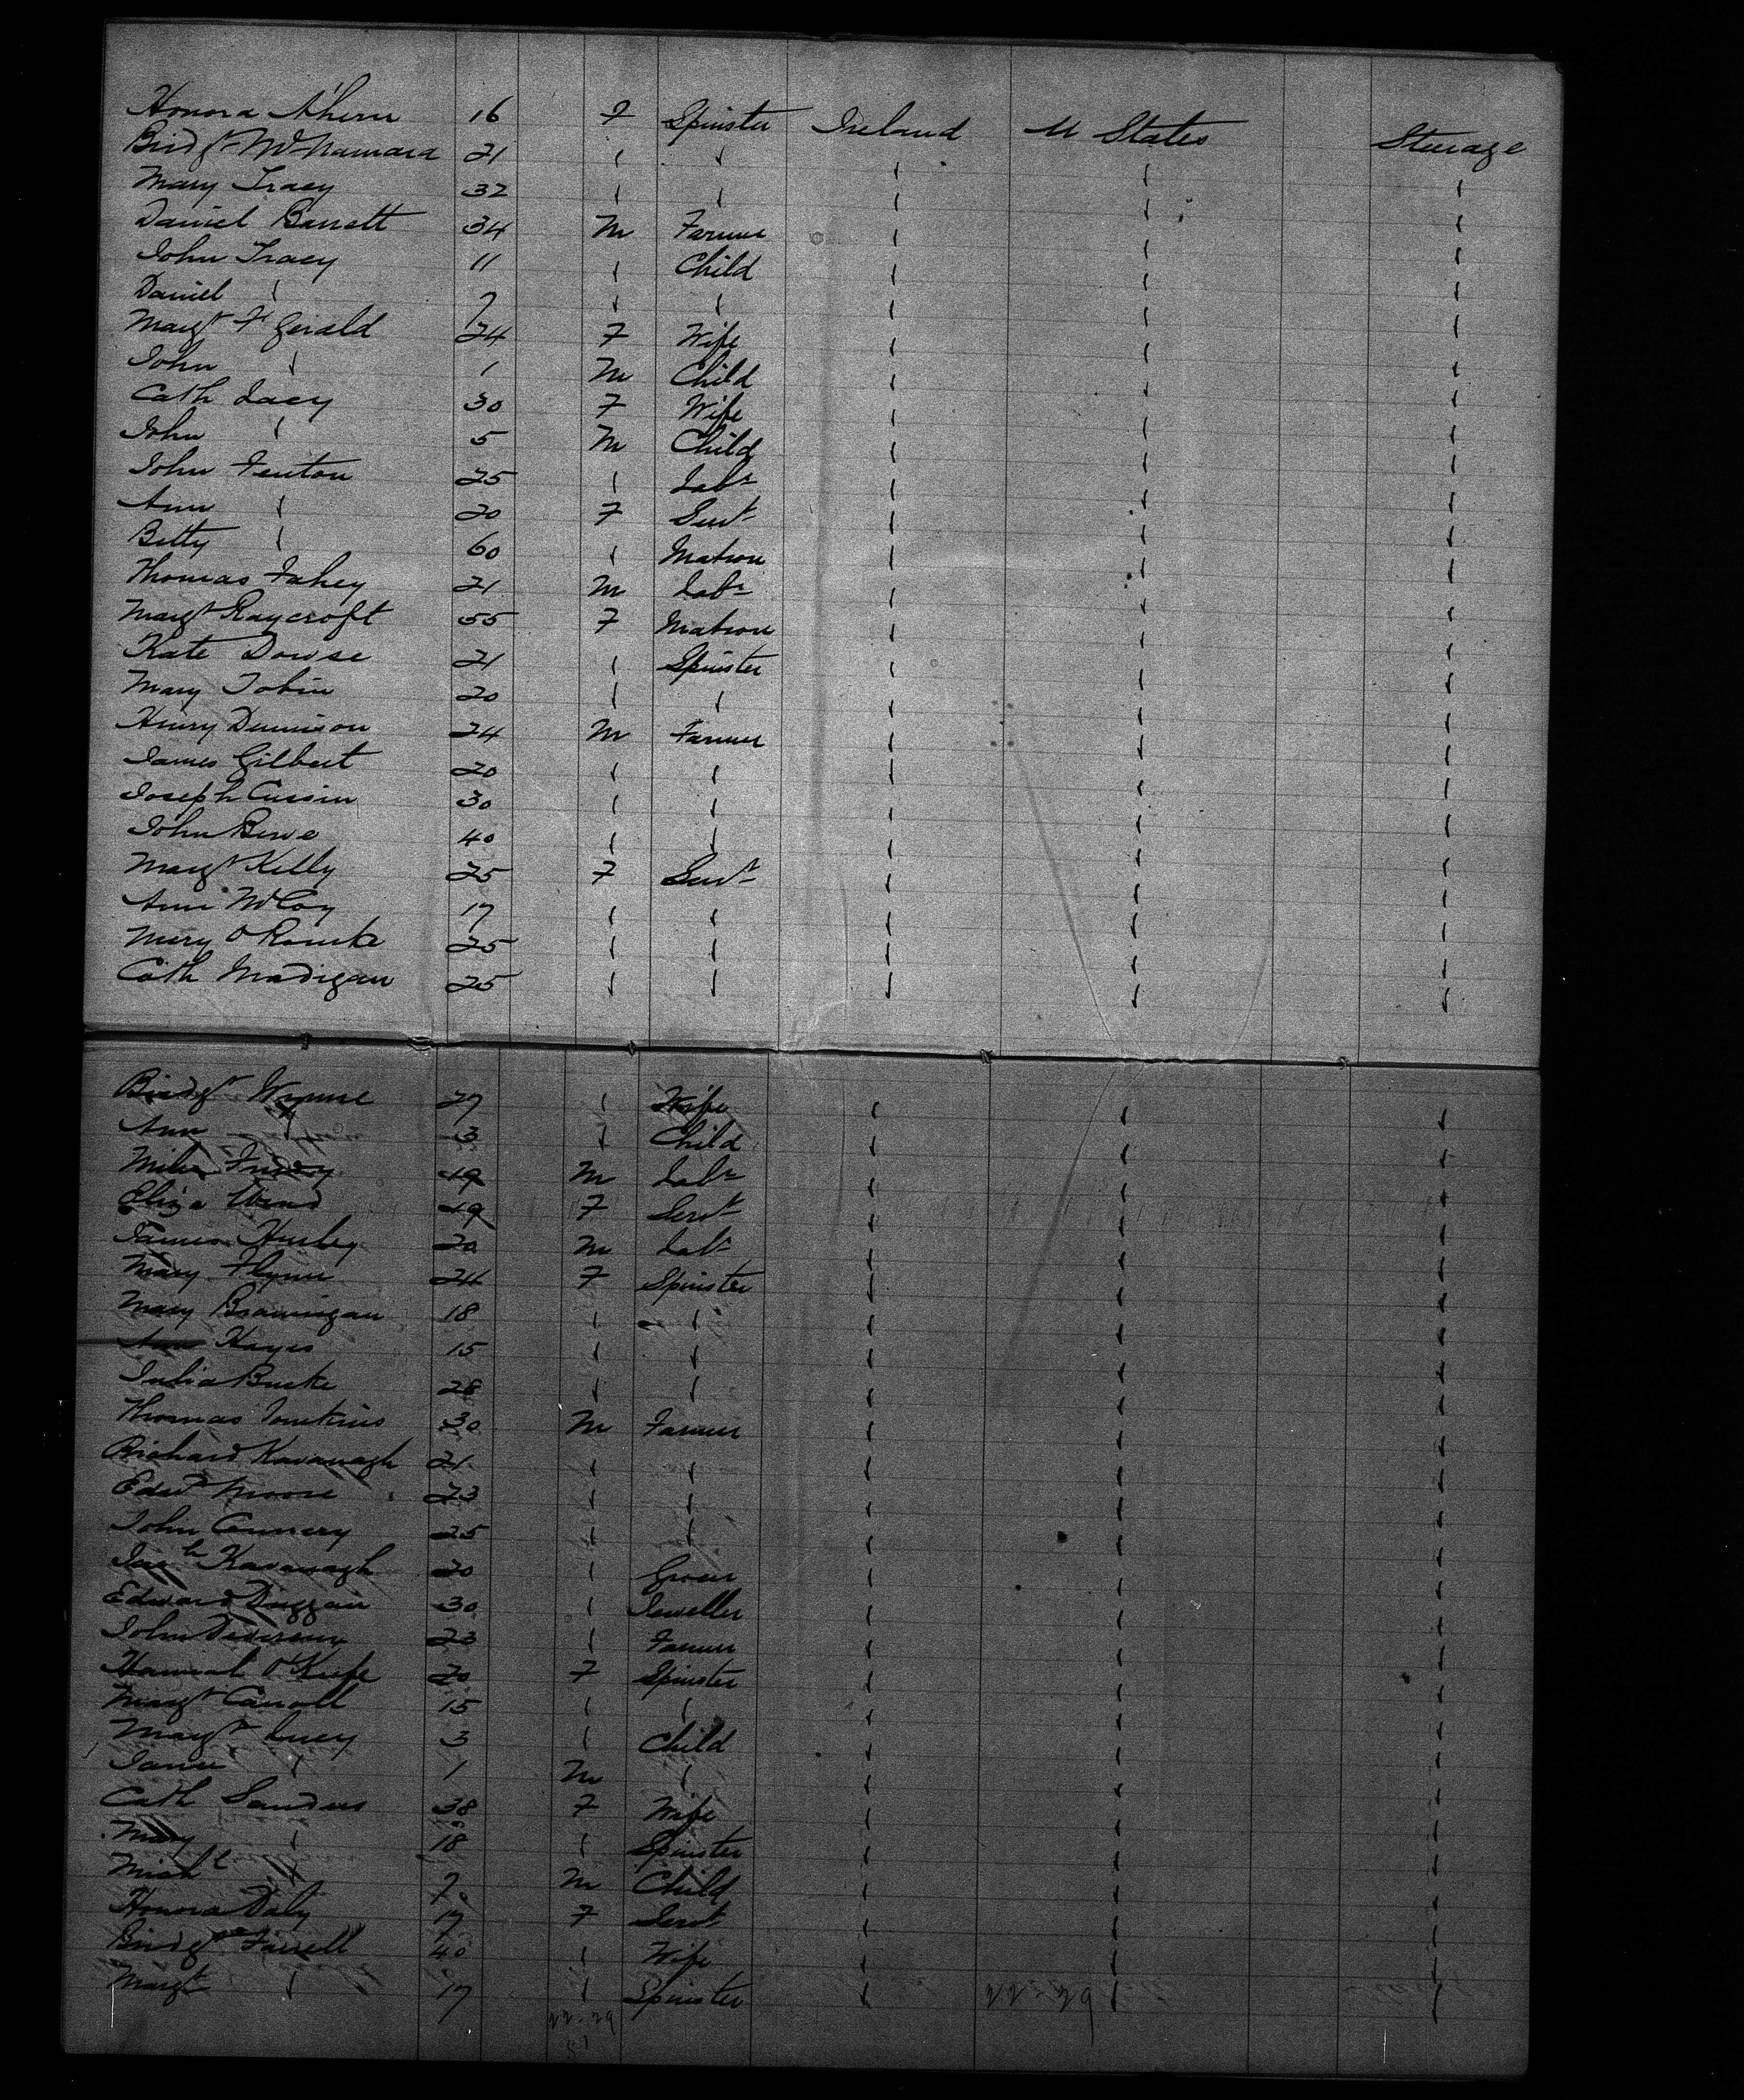 Honora Ahern 16 F Spinster Ireland U States Steerage
Bridgt McNamara 21 " "
Mary Tracy 32 " "
Daniel Barrett 34 M Farmer
John Tracy 11 " Child
Daniel " 7 " "
Margt Ft Gerald 24 F Wife
John " 1 M Child
Cath Lacy 30 F Wife
John " 5 M Child
John Fenton 25 " Labr
Ann " 20 F Servt
Betty " 60 " Matron
Thomas Fahey 21 M Labr
Margt Raycroft 55 F Matron
Kate Dowse 21 " Spinster
Mary Tobin 20 " "
Henry Dennison 24 M Farmer
James Gilbert 20 " "
Joseph Cussin 30 " "
John 40 " "
Margt Kelly 25 F Servt
Ann McCoy 17 " "
Mary O Rourke 25 " "
Cath Madigan 25 " "
Bridgt Wynne 27 " Wife
Ann " 3 " Child
19 M Labr
Eliza 19 F Servt
James Hurley 20 M Labr
Mary Flynn 24 F Spinster
Mary Brannigan 18 " "
Ann Hayes 15 " "
Julia Burke 28 " "
Thomas Tomkins 30 M Farmer
Richard Kavanagh 21 " "
Edwd Moore 23 " "
John Connery 25 " "
Kavanagh 20 " Grocer
Edward Duggan 30 " Jeweller
John Devereux 23 " Farmer
Hannah O'Keefe 20 F Spinster
Margt Carroll 15 " "
Margt Lucy 3 " Child
James " 1 M "
Cath Sanders 38 F Wife
Mary " 18 " Spinster
Michl " 7 M Child
Honora Daly 17 F Servt
Bridgt Farrell 40 " Wife
Margt " 17 " Spinster